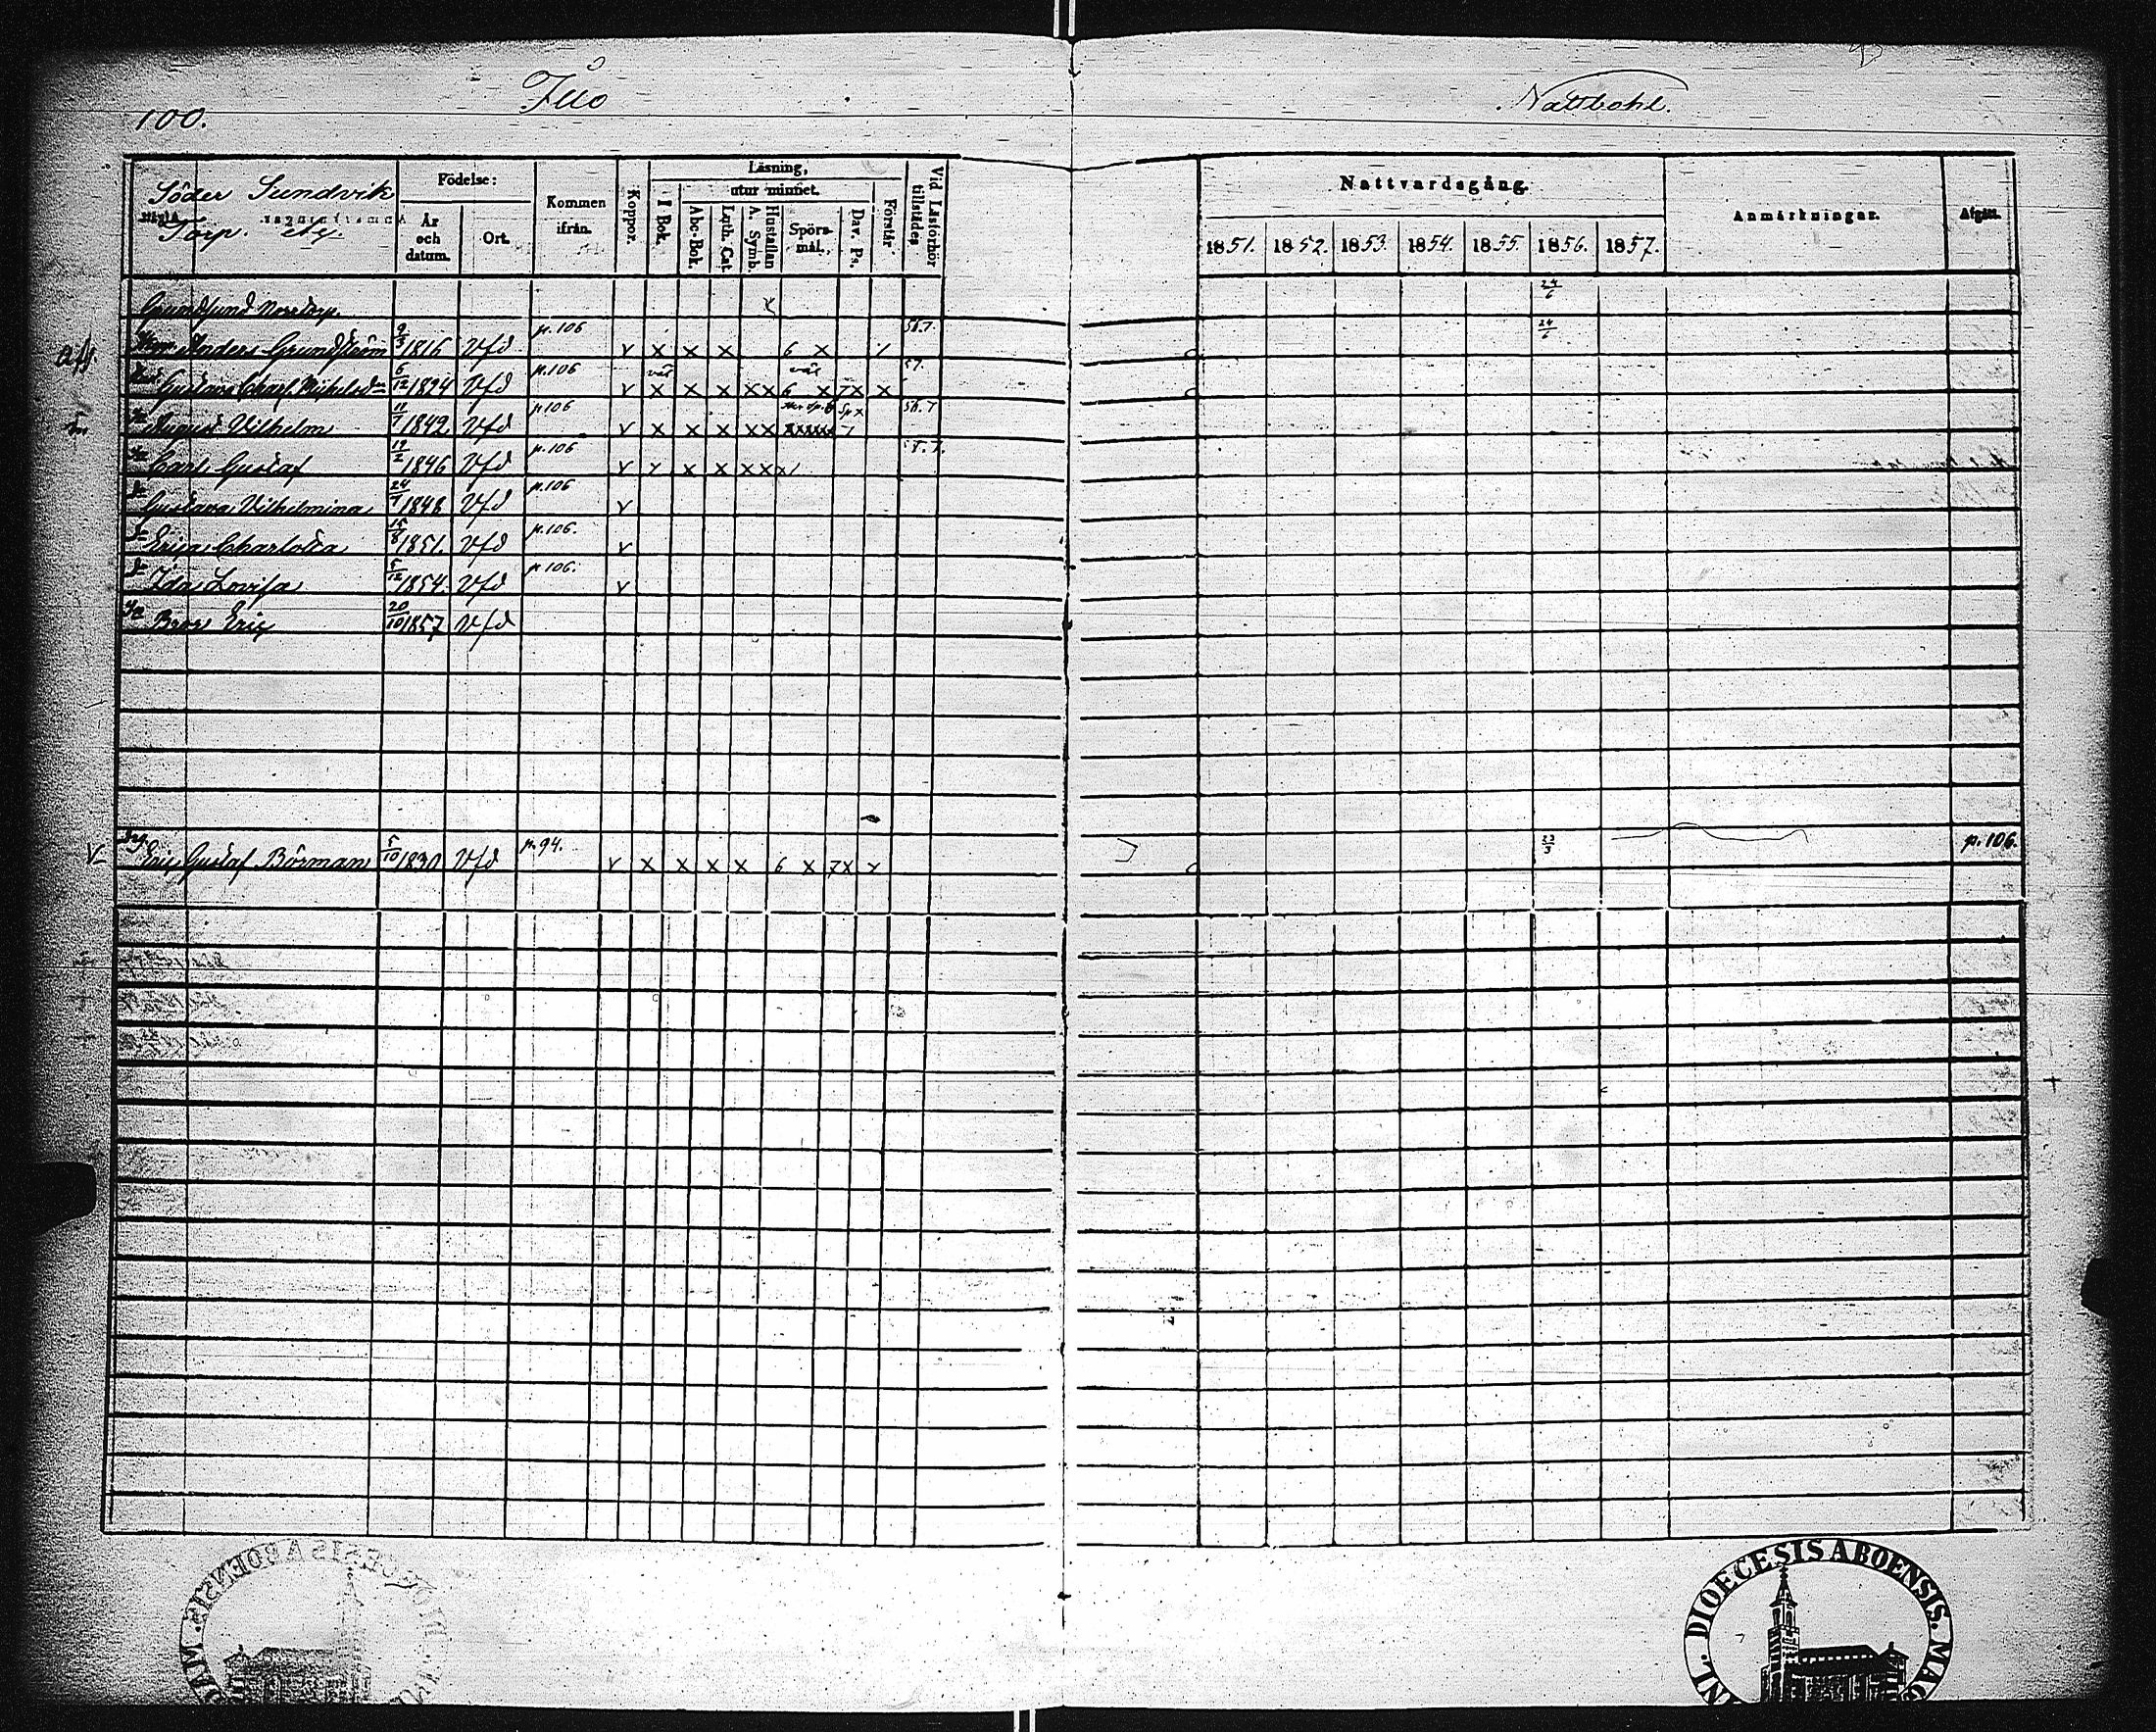 100.
Nattbohl.
Söder Sundvik
Torp.
Födelse:
År och datum.
Ort.
Kommen ifrån.
Koppor.
Läsning,
utur minnet.
I Bok.
Abc-Bok.
Luth. Cat.
Hustaflan A. Symb.
Spörsmål.
Dav. Ps.
Förstår.
Vid Läsförhör tillstädes
Nattvardsgång.
1851. 1852. 1853. 1854. 1855. 1856. 1857.
Anmärkningar.
Afgått.
Grundsund 24/6
Anders Grundström 9/3 1816 Vfd p.106 v x x x 6 x / 56.7. 24/6
Gustava Charl. 6/12 1824 Vfd p.106 v x x x x x 6 x 7 x x 57.
August Vilhelm 11/7 1842 Vfd p.106 v x x x x x 56.7
Carl Gustaf 12/2 1846 Vfd p.106 v
Gustava Vilhelmina 24/7 1848 Vfd p.106 v
Erica Charlotta 15/8 1851. Vfd p.106. v
Ida Lovisa 5/12 1854. Vfd p.106. v
Bror Eric 20/10 1857 Vfd
Eric Gustaf Börman 5/10 1830 Vfd p.94. v x x x x 6 x 7x x 23/3 p.106.
DIOECESIS ABOENSIS.